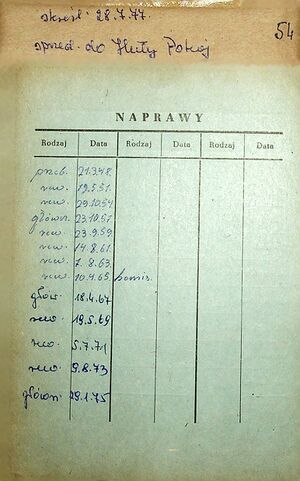 skreśl. 28.7.77.
54
sprzed. do Huty Pokój
NAPRAWY
Rodzaj Data Rodzaj Data Rodzaj Data
przeb. 21.3.48.
rew. 19.5.51.
rew. 29.10.54
główn. 23.10.57
rew. 23.9.59
rew. 14.8.61.
rew. 7.8.63.
rew. 10.4.65. komis.
głów. 18.4.67
rew. 19.5.69
rew. 5.7.71
rew. 9.8.73
główn. 29.1.75